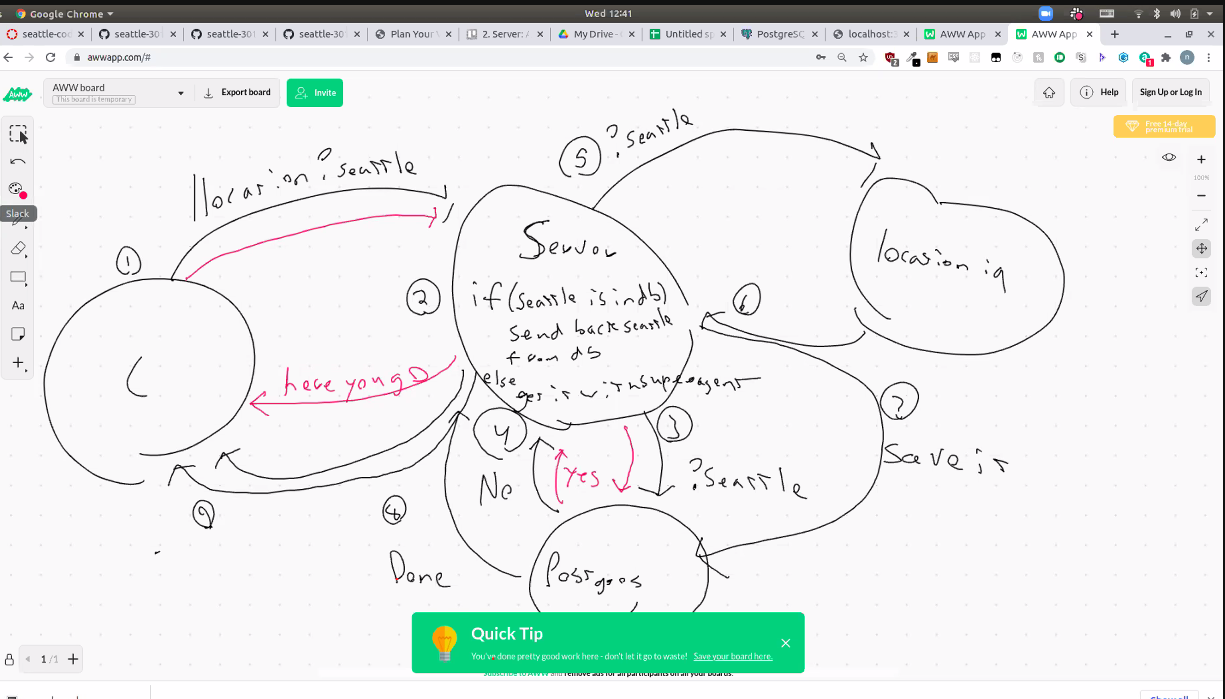 Google Chrome
Wed 12:41
seattle-co
seattle-30
seattle-30
seattle-30
Plan Your
2. Server: A
My Drive - G
Untitled sp
PostgreSQ
localhost:3
AWW App
AWW App
awwapp.com/#
AWW board
This board is temporary
Export board
Invite
Help
Sign Up or Log In
Free 14-day
premium trial
100%
Slack
Aa
/locasion?seattle
5
?seattle
1
Server
locasion iq
2
if(seattle is in db)
send back seattle
from db
else
get it with superagent
6
here you go
C
7
save it
4
3
No
Yes
?Seattle
9
8
Done
Postgres
Quick Tip
You've done pretty good work here - don't let it go to waste! Save your board here.
Subscribe to AWW and remove ads for all participants on all your boards.
1 /1
Show all